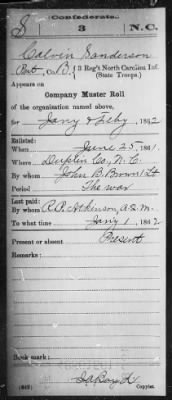 Confederate.
S 3 N.C.
Calvin Sanderson
Pvt, Co. B, 3 Reg't North Carolina Inf.
(State Troops.)
Appears on
Company Muster Roll
of the organization named above,
for Jany & Feby, 1862
Enlisted:
When June 25, 1861
Where Duplin Co, N.C.
By whom John B. Brown 1 Lt
Period The war
Last paid:
By whom R.P. Atkinson, A.Q.M.
To what time Jany 1, 1862
Present or absent Present
Remarks:
Book mark:
(642) Copyist.